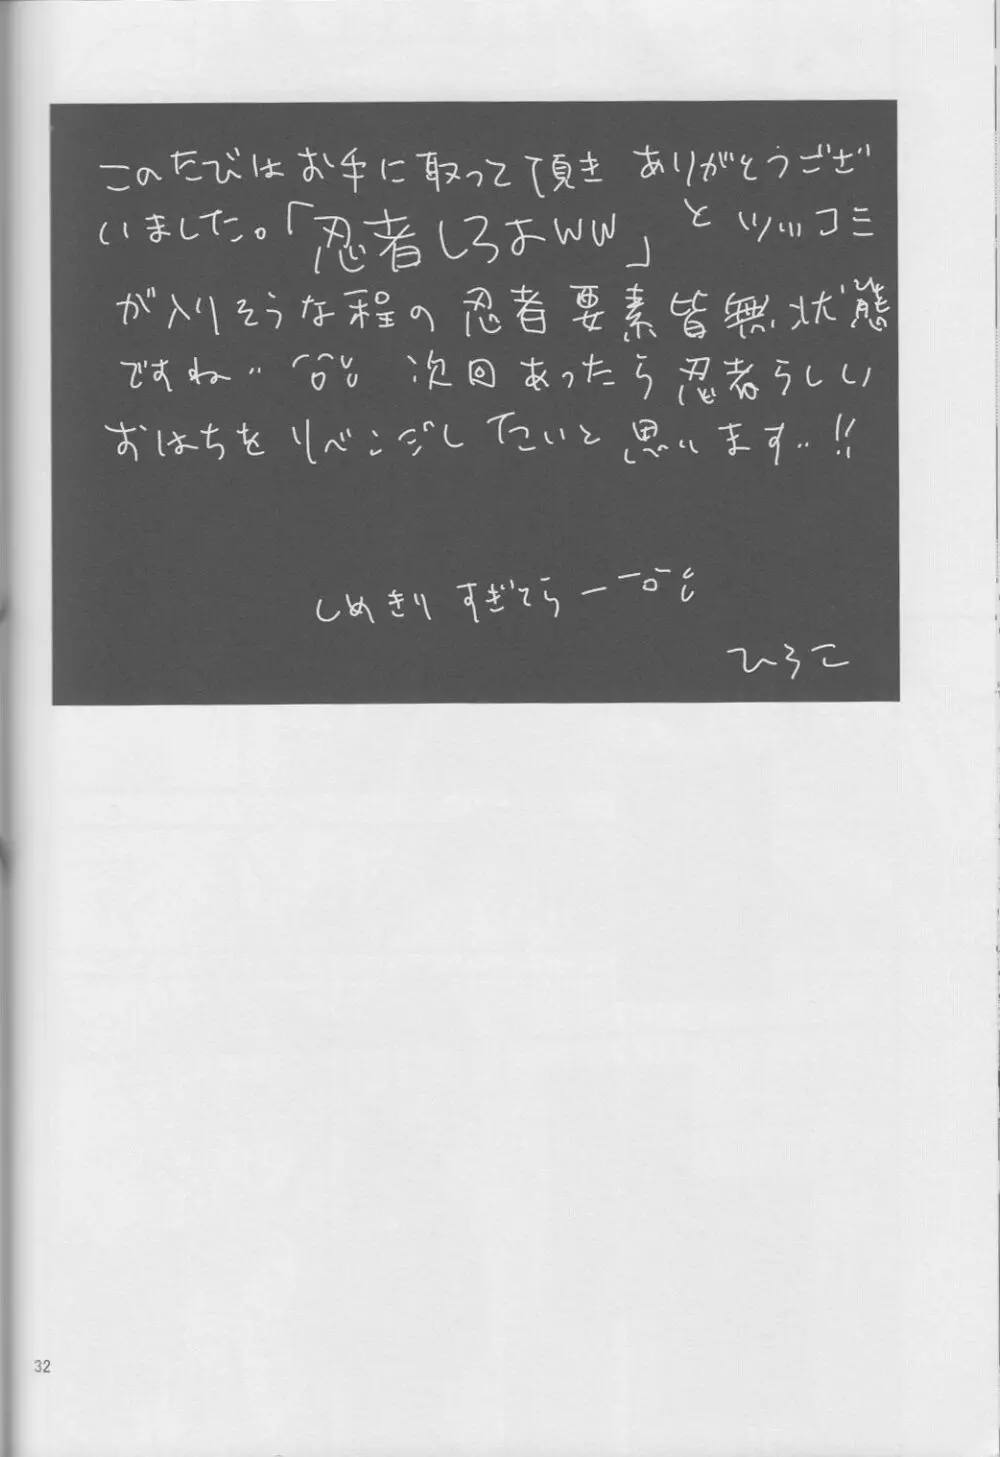 このたびはお手に取って頂き ありがとうござ
いました。「忍者しろよww」とツッコミ
が入りそうな程の忍者要素皆無状態
ですね‥ 次回あったら忍者らしい
おはちをリベンジしたいと思います‥!!
しめきりすぎてらー
ひろこ
32